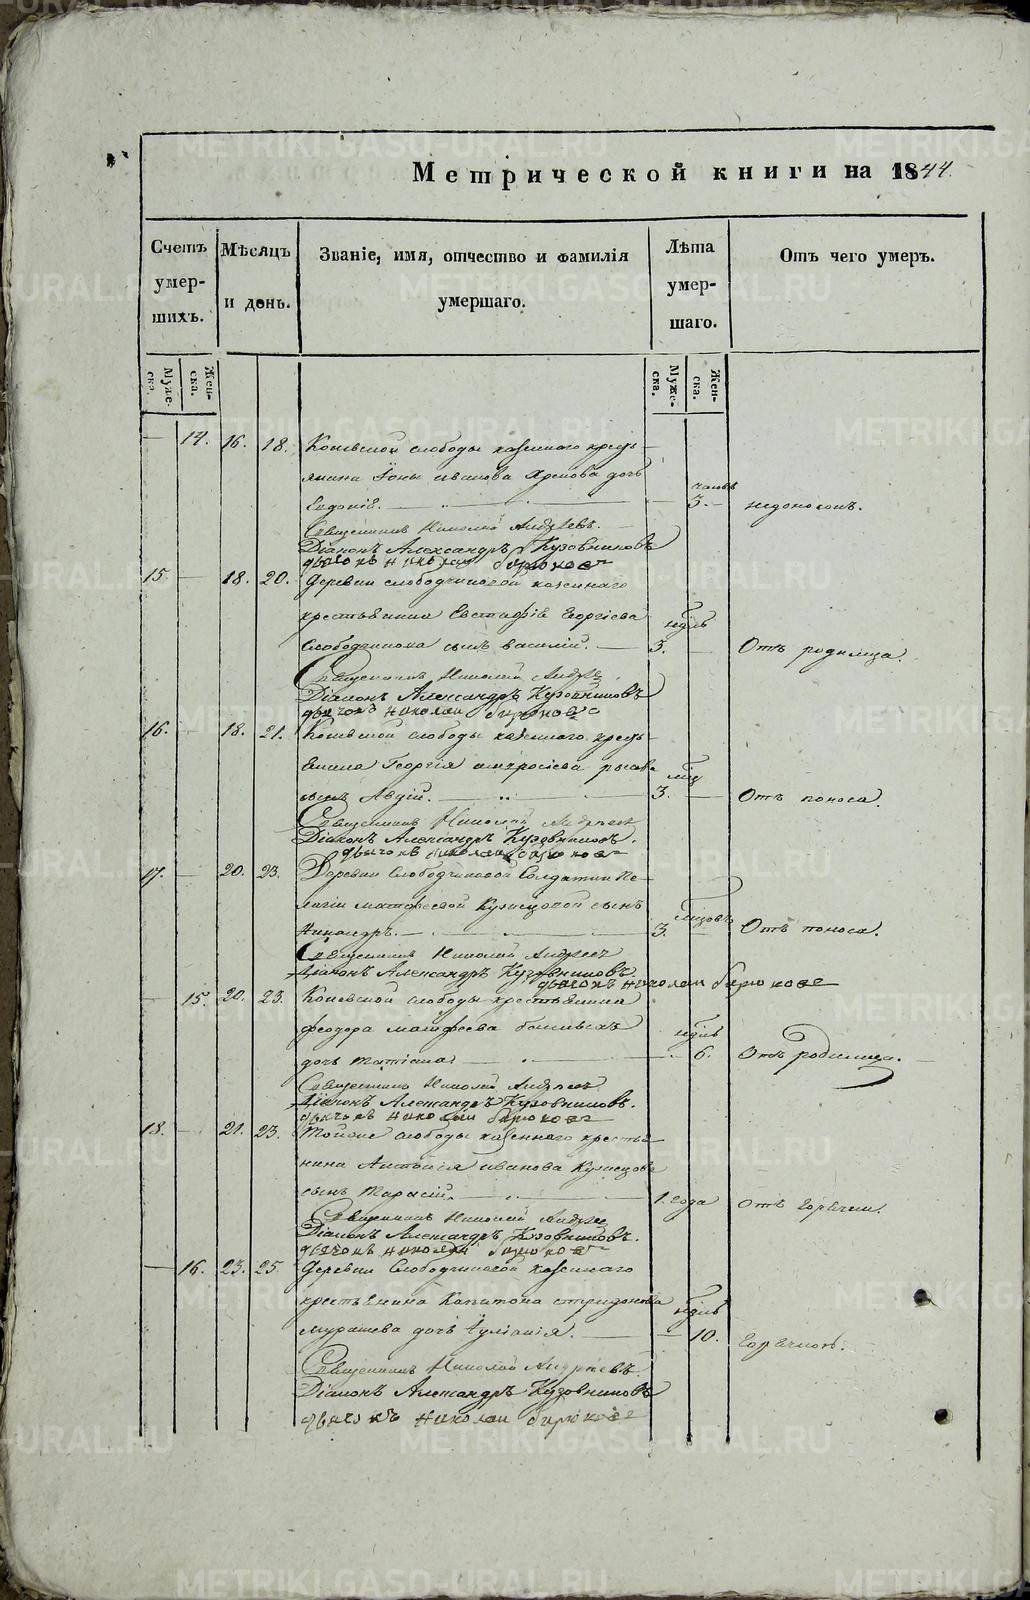 Метрической книги на 1844.
Счетъ умер-шихъ.
Мѣсяцъ и день.
Званіе, имя, отчество и фамилія умершаго.
Лѣта умер-шаго.
Отъ чего умеръ.
Муже-ска.
Жен-ска.
Муже-ска.
Жен-ска.
14. 16. 18. слободы казеннаго кресть-
янина Іоны иванова дочь часовъ
Евдокія. 3. недоноскъ.
Священникъ Николай Андреевъ.
Діаконъ Александръ Кузовниковъ
дьячокъ николаи бирюковъ
15. 18. 20. Деревни слободчиковой казеннаго
крестьянина Евстафія Георгіева недѣль
Слободчикова сынъ василій. 3. Отъ родимца.
Священникъ Николай
Діаконъ Александръ Кузовниковъ
дьячокъ николаи бирюковъ
16. 18. 21. слободы казеннаго кресть-
янина Георгія амвросіева
сынъ 3. Отъ поноса.
Священникъ Николай Андреевъ
Діаконъ Александръ Кузовниковъ.
дьячокъ николаи бирюковъ
17. 20. 23. Деревни Слободчиковой Солдатки Пе-
лагіи матфеевой Кузнецовой сынъ
Никандръ. 3. Отъ поноса.
Священникъ Николай Андреевъ
Діаконъ Александръ Кузовниковъ.
дьячокъ николаи бирюковъ
15. 20. 23. слободы крестьянина
феодора матфеева недѣль
дочь Татіана. 6. Отъ родимца.
Священникъ Николай Андреевъ
Діаконъ Александръ Кузовниковъ.
дьячокъ николаи бирюковъ
18. 21. 23. Тойже слободы казеннаго кресть-
янина иванова Кузнецова
сынъ Тарасій. 1. года Отъ горячки.
Священникъ Николай
Діаконъ Александръ Кузовниковъ.
дьячокъ николаи бирюковъ
16. 23. 25. Деревни Слободчиковой казеннаго
крестьянина Капитона недѣль
мурашева дочь Іуліанія. 10. горячкою.
Священникъ Николай Андреевъ
Діаконъ Александръ Кузовниковъ
дьячокъ николаи бирюковъ
METRIKI.GASO-URAL.RU